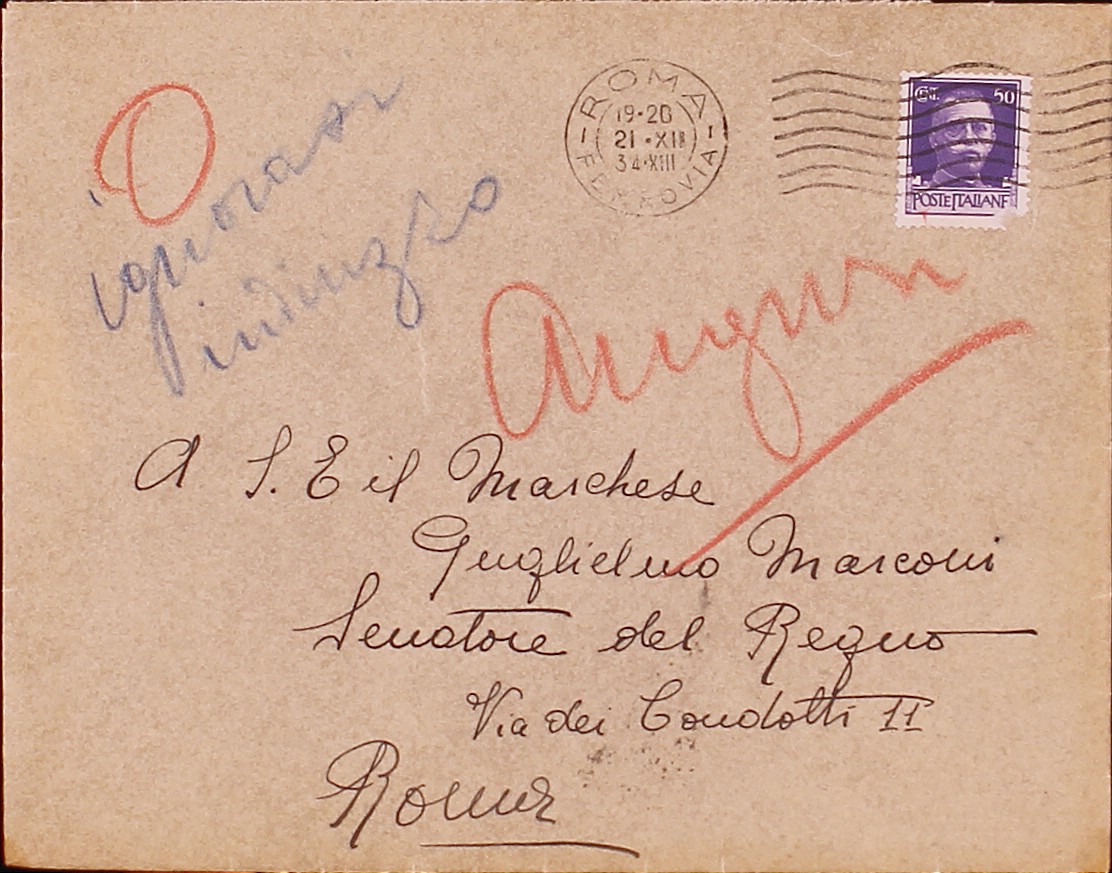 ROMA
19-20
21·XII
34·XIII
FERROVIA
Cent. 50
POSTE ITALIANE
ignorasi
indirizzo
Auguri
A S. E il Marchese
Guglielmo Marconi
Senatore del Regno
Via dei Condotti 11
Roma